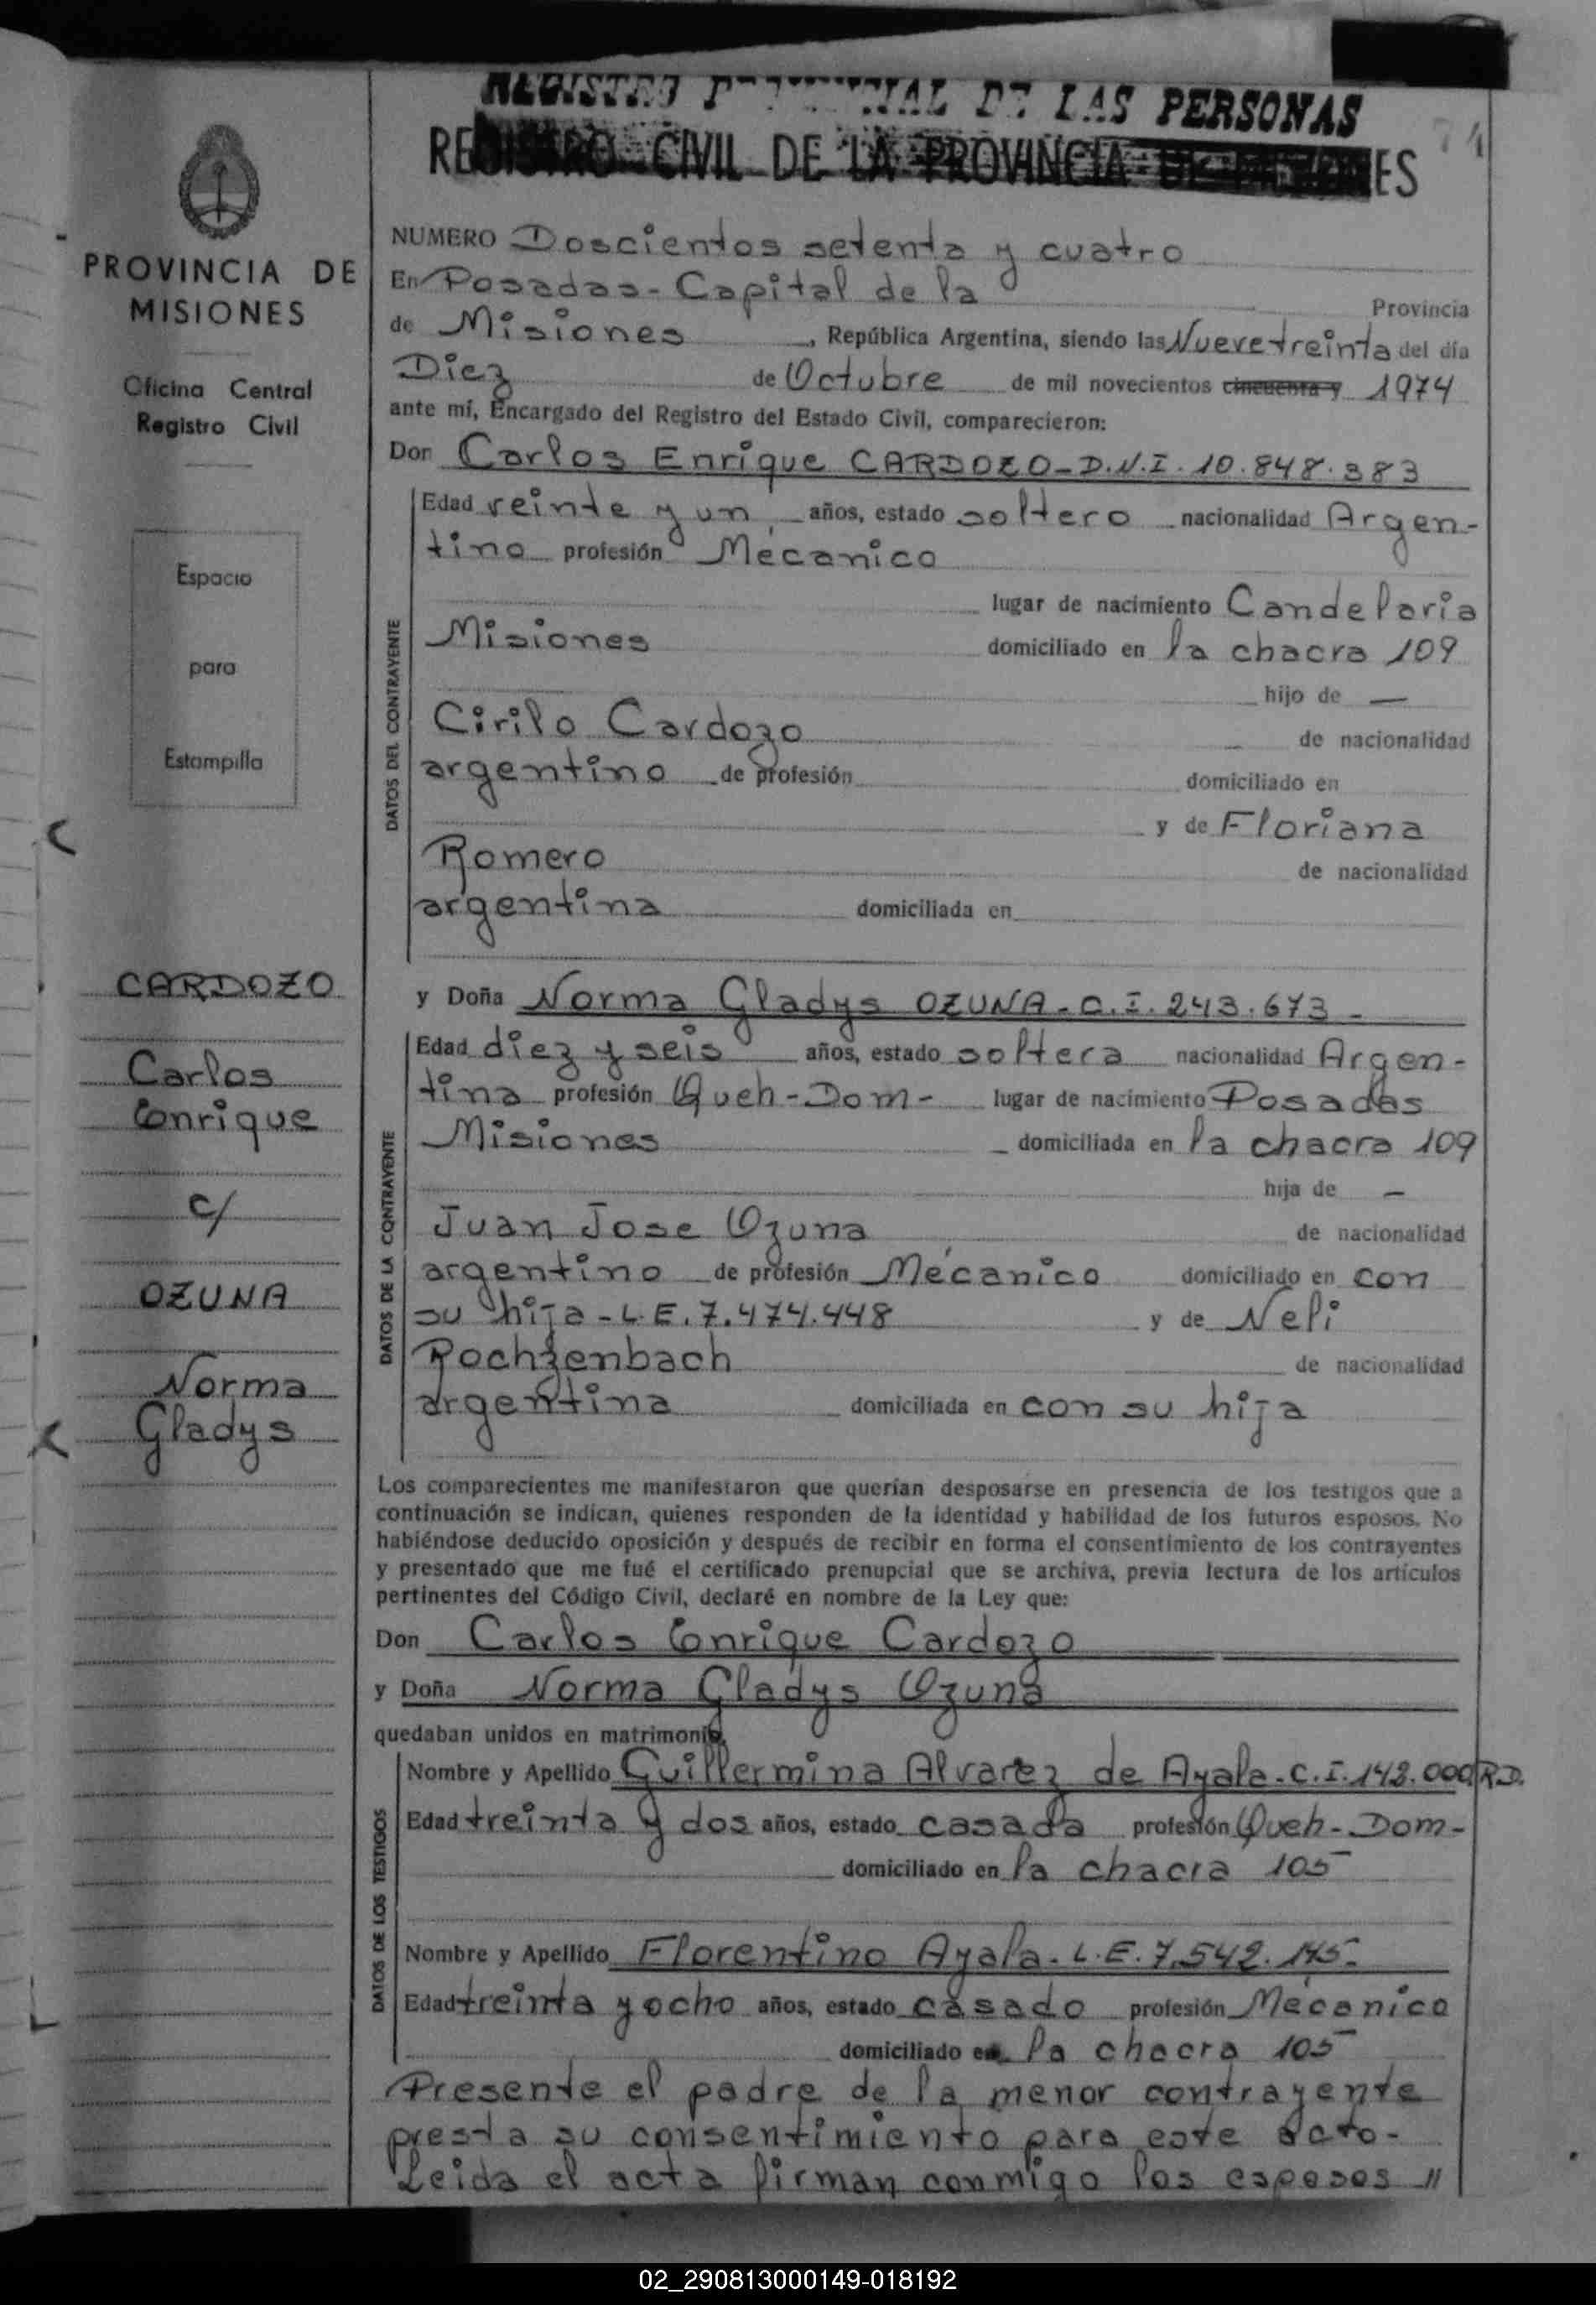 REGISTRO PROVINCIAL DE LAS PERSONAS
REGISTRO CIVIL DE LA PROVINCIA DE MISIONES
74
PROVINCIA DE
MISIONES
Oficina Central
Registro Civil
Espacio
para
Estampilla
CARDOZO
Carlos
Enrique
c/
OZUNA
Norma
Gladys
NUMERO Doscientos setenta y cuatro
En Posadas - Capital de la Provincia
de Misiones, República Argentina, siendo las Nueve treinta del día
Diez de Octubre de mil novecientos cincuenta y 1974
ante mí, Encargado del Registro del Estado Civil, comparecieron:
Don Carlos Enrique CARDOZO - D.N.I. 10.848.383
DATOS DEL CONTRAYENTE
Edad veinte y un años, estado soltero nacionalidad Argen-
tino profesión Mecánico
lugar de nacimiento Candelaria
Misiones domiciliado en la chacra 109
hijo de —
Cirilo Cardozo de nacionalidad
argentino de profesión domiciliado en
y de Floriana
Romero de nacionalidad
argentina domiciliada en
y Doña Norma Gladys OZUNA - C.I. 243.673 -
DATOS DE LA CONTRAYENTE
Edad diez y seis años, estado soltera nacionalidad Argen-
tina profesión Queh-Dom- lugar de nacimiento Posadas
Misiones domiciliada en la chacra 109
hija de —
Juan Jose Ozuna de nacionalidad
argentino de profesión Mécanico domiciliado en con
su hija - L.E. 7.474.448 y de Neli
Rochzenbach de nacionalidad
argentina domiciliada en con su hija
Los comparecientes me manifestaron que querían desposarse en presencia de los testigos que a
continuación se indican, quienes responden de la identidad y habilidad de los futuros esposos. No
habiéndose deducido oposición y después de recibir en forma el consentimiento de los contrayentes
y presentado que me fué el certificado prenupcial que se archiva, previa lectura de los artículos
pertinentes del Código Civil, declaré en nombre de la Ley que:
Don Carlos Enrique Cardozo
y Doña Norma Gladys Ozuna
quedaban unidos en matrimonio.
DATOS DE LOS TESTIGOS
Nombre y Apellido Guillermina Alvarez de Ayala - C.I. 142.000 R.D.
Edad treinta y dos años, estado casada profesión Queh-Dom-
domiciliado en la chacra 105
Nombre y Apellido Florentino Ayala - L.E. 7.542.145 -
Edad treinta y ocho años, estado casado profesión Mécanico
domiciliado en la chacra 105
Presente el padre de la menor contrayente
presta su consentimiento para este acto -
Leida el acta firman conmigo los esposos "
02_290813000149-018192